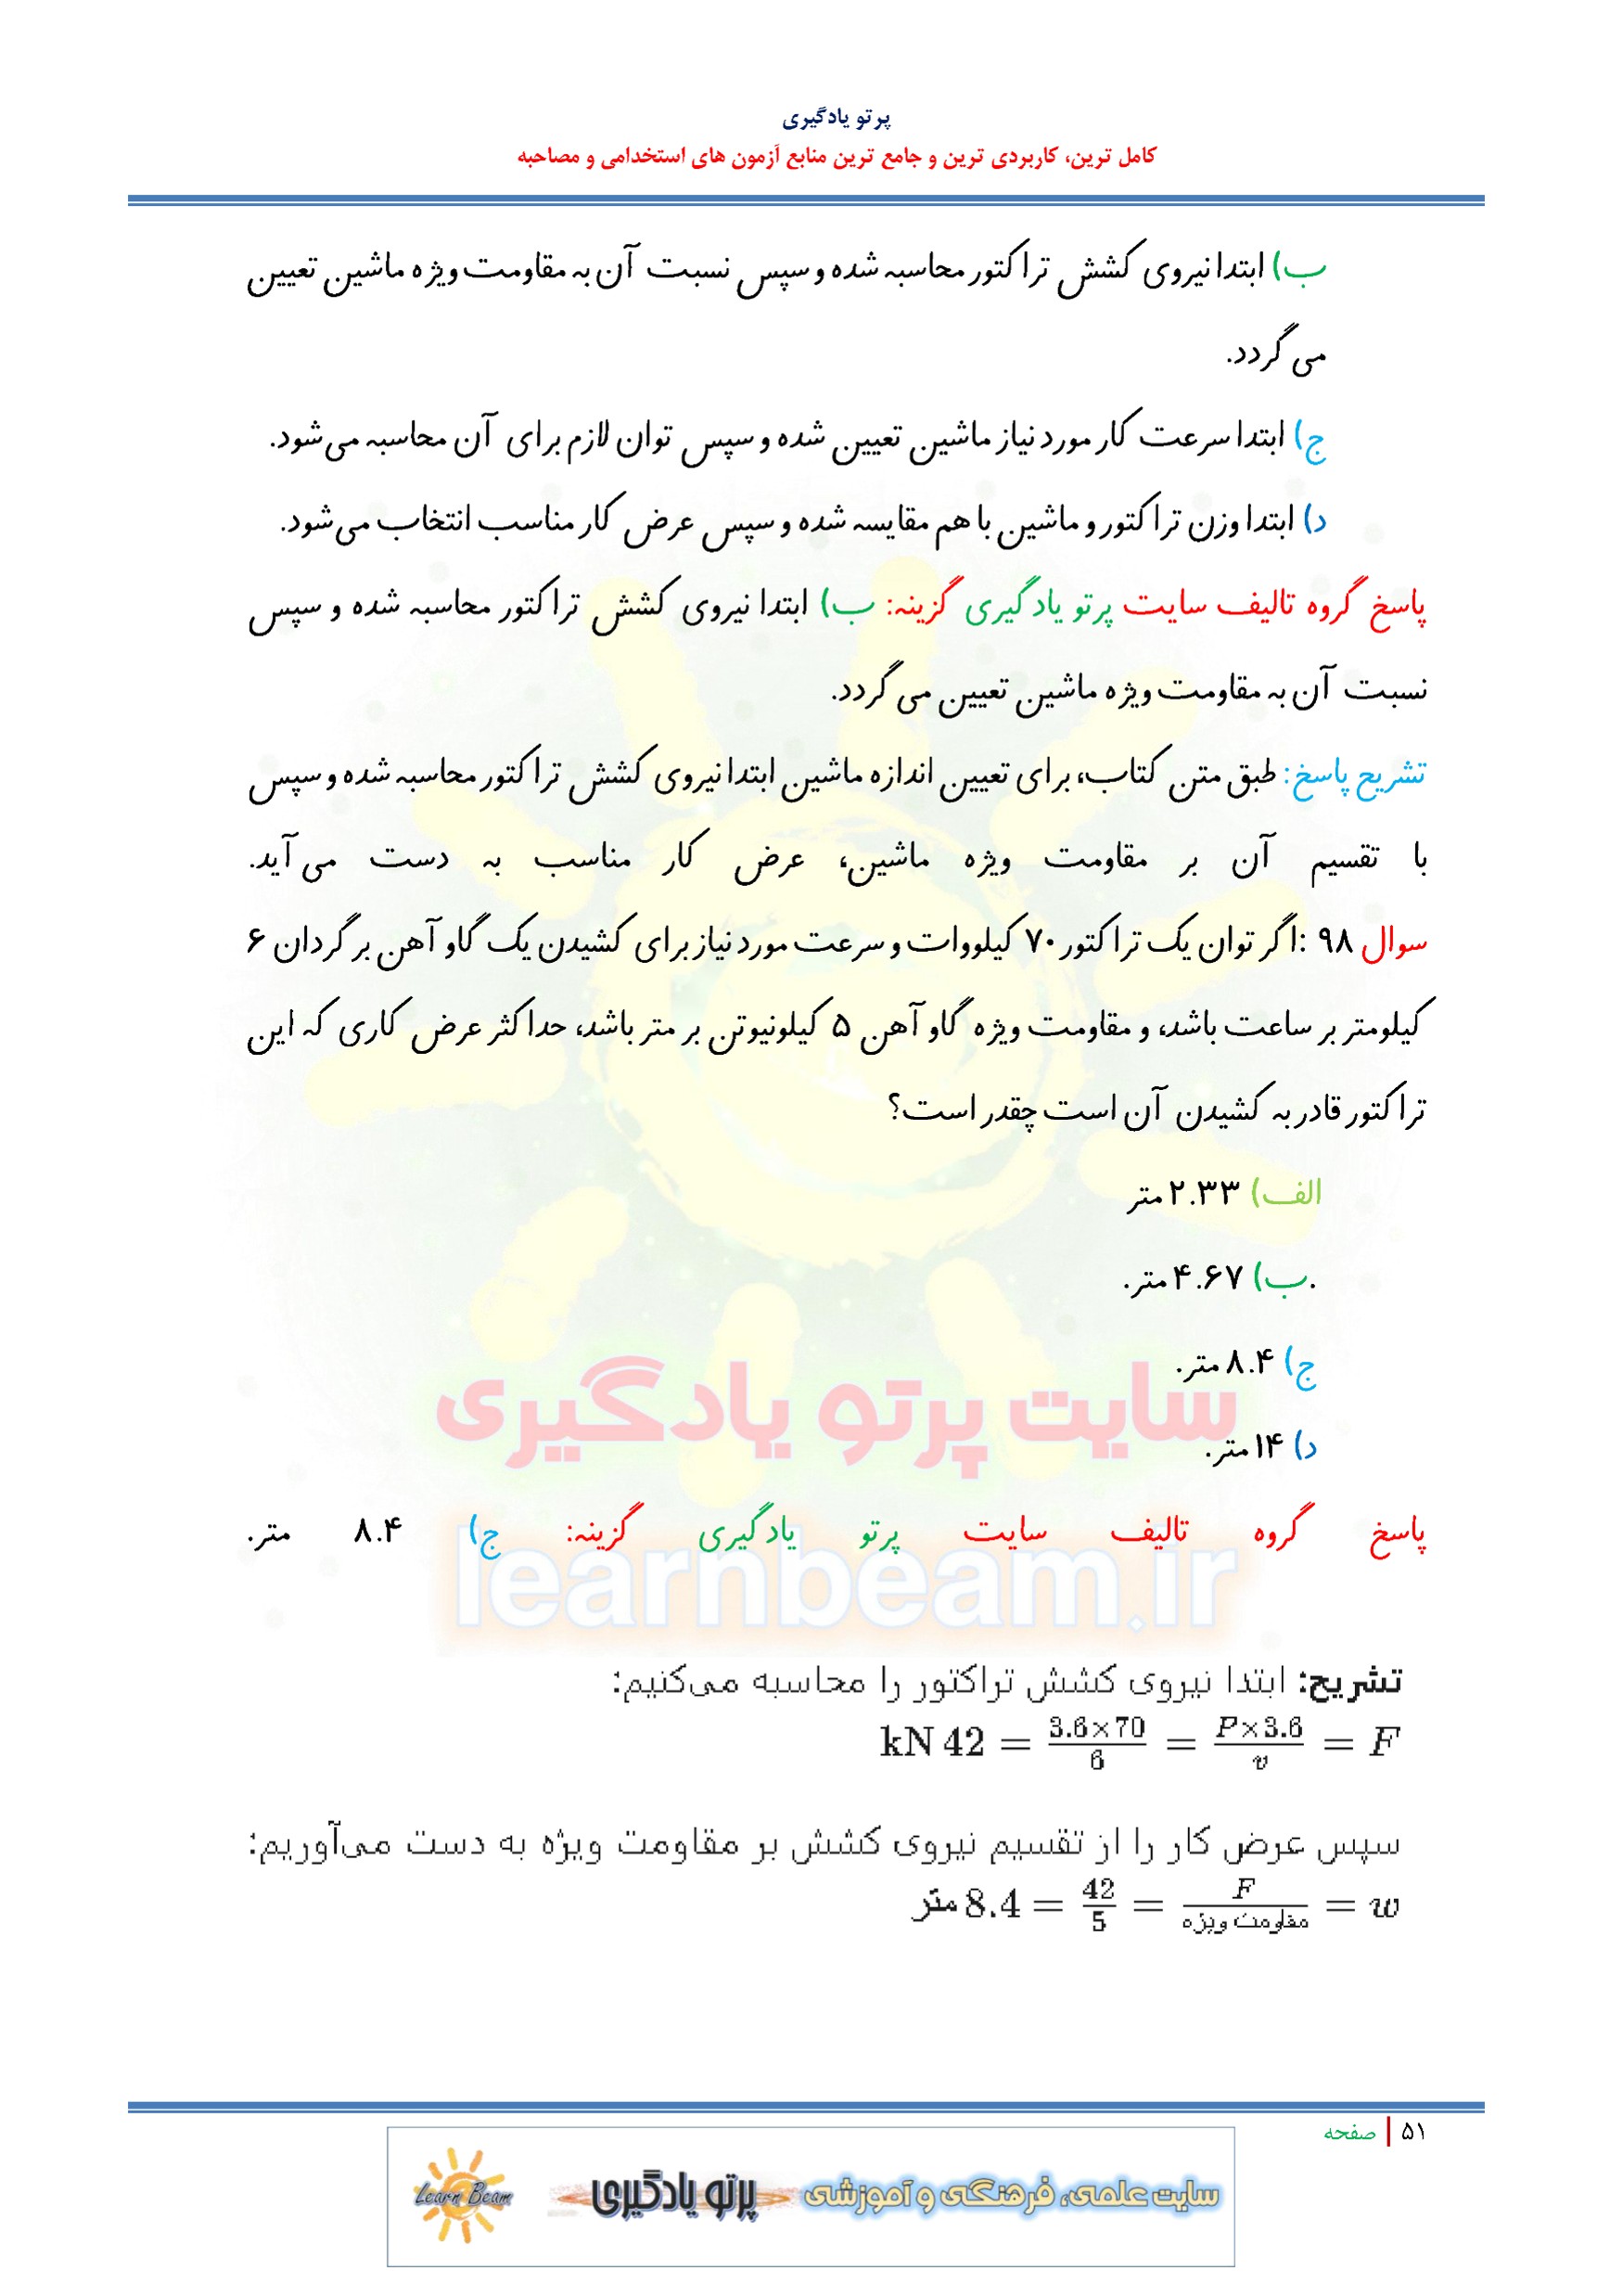 پرتو یادگیری
کامل ترین، کاربردی ترین و جامع ترین منابع آزمون های استخدامی و مصاحبه
ب) ابتدا نیروی کشش تراکتور محاسبه شده و سپس نسبت آن به مقاومت ویژه ماشین تعیین
می گردد.
ج) ابتدا سرعت کار مورد نیاز ماشین تعیین شده و سپس توان لازم برای آن محاسبه می‌شود.
د) ابتدا وزن تراکتور و ماشین با هم مقایسه شده و سپس عرض کار مناسب انتخاب می‌شود.
پاسخ گروه تالیف سایت پرتو یادگیری گزینه: ب) ابتدا نیروی کشش تراکتور محاسبه شده و سپس
نسبت آن به مقاومت ویژه ماشین تعیین می گردد.
تشریح پاسخ: طبق متن کتاب، برای تعیین اندازه ماشین ابتدا نیروی کشش تراکتور محاسبه شده و سپس
با تقسیم آن بر مقاومت ویژه ماشین، عرض کار مناسب به دست می آید.
سوال ۹۸ :اگر توان یک تراکتور ۷۰ کیلووات و سرعت مورد نیاز برای کشیدن یک گاو آهن برگردان ۶
کیلومتر بر ساعت باشد، و مقاومت ویژه گاو آهن ۵ کیلونیوتن بر متر باشد، حداکثر عرض کاری که این
تراکتور قادر به کشیدن آن است چقدر است؟
الف) ۲.۳۳ متر
.ب) ۴.۶۷ متر.
ج) ۸.۴ متر.
د) ۱۴ متر.
سایت پرتو یادگیری
پاسخ گروه تالیف سایت پرتو یادگیری گزینه: ج) ۸.۴ متر.
learnbeam.ir
تشریح: ابتدا نیروی کشش تراکتور را محاسبه می‌کنیم:
kN 42 = \frac{3.6×70}{6} = \frac{P×3.6}{v} = F
سپس عرض کار را از تقسیم نیروی کشش بر مقاومت ویژه به دست می‌آوریم:
متر 8.4 = \frac{42}{5} = \frac{F}{مقاومت ویژه} = w
۵۱ | صفحه
سایت علمی، فرهنگی و آموزشی پرتو یادگیری Learn Beam